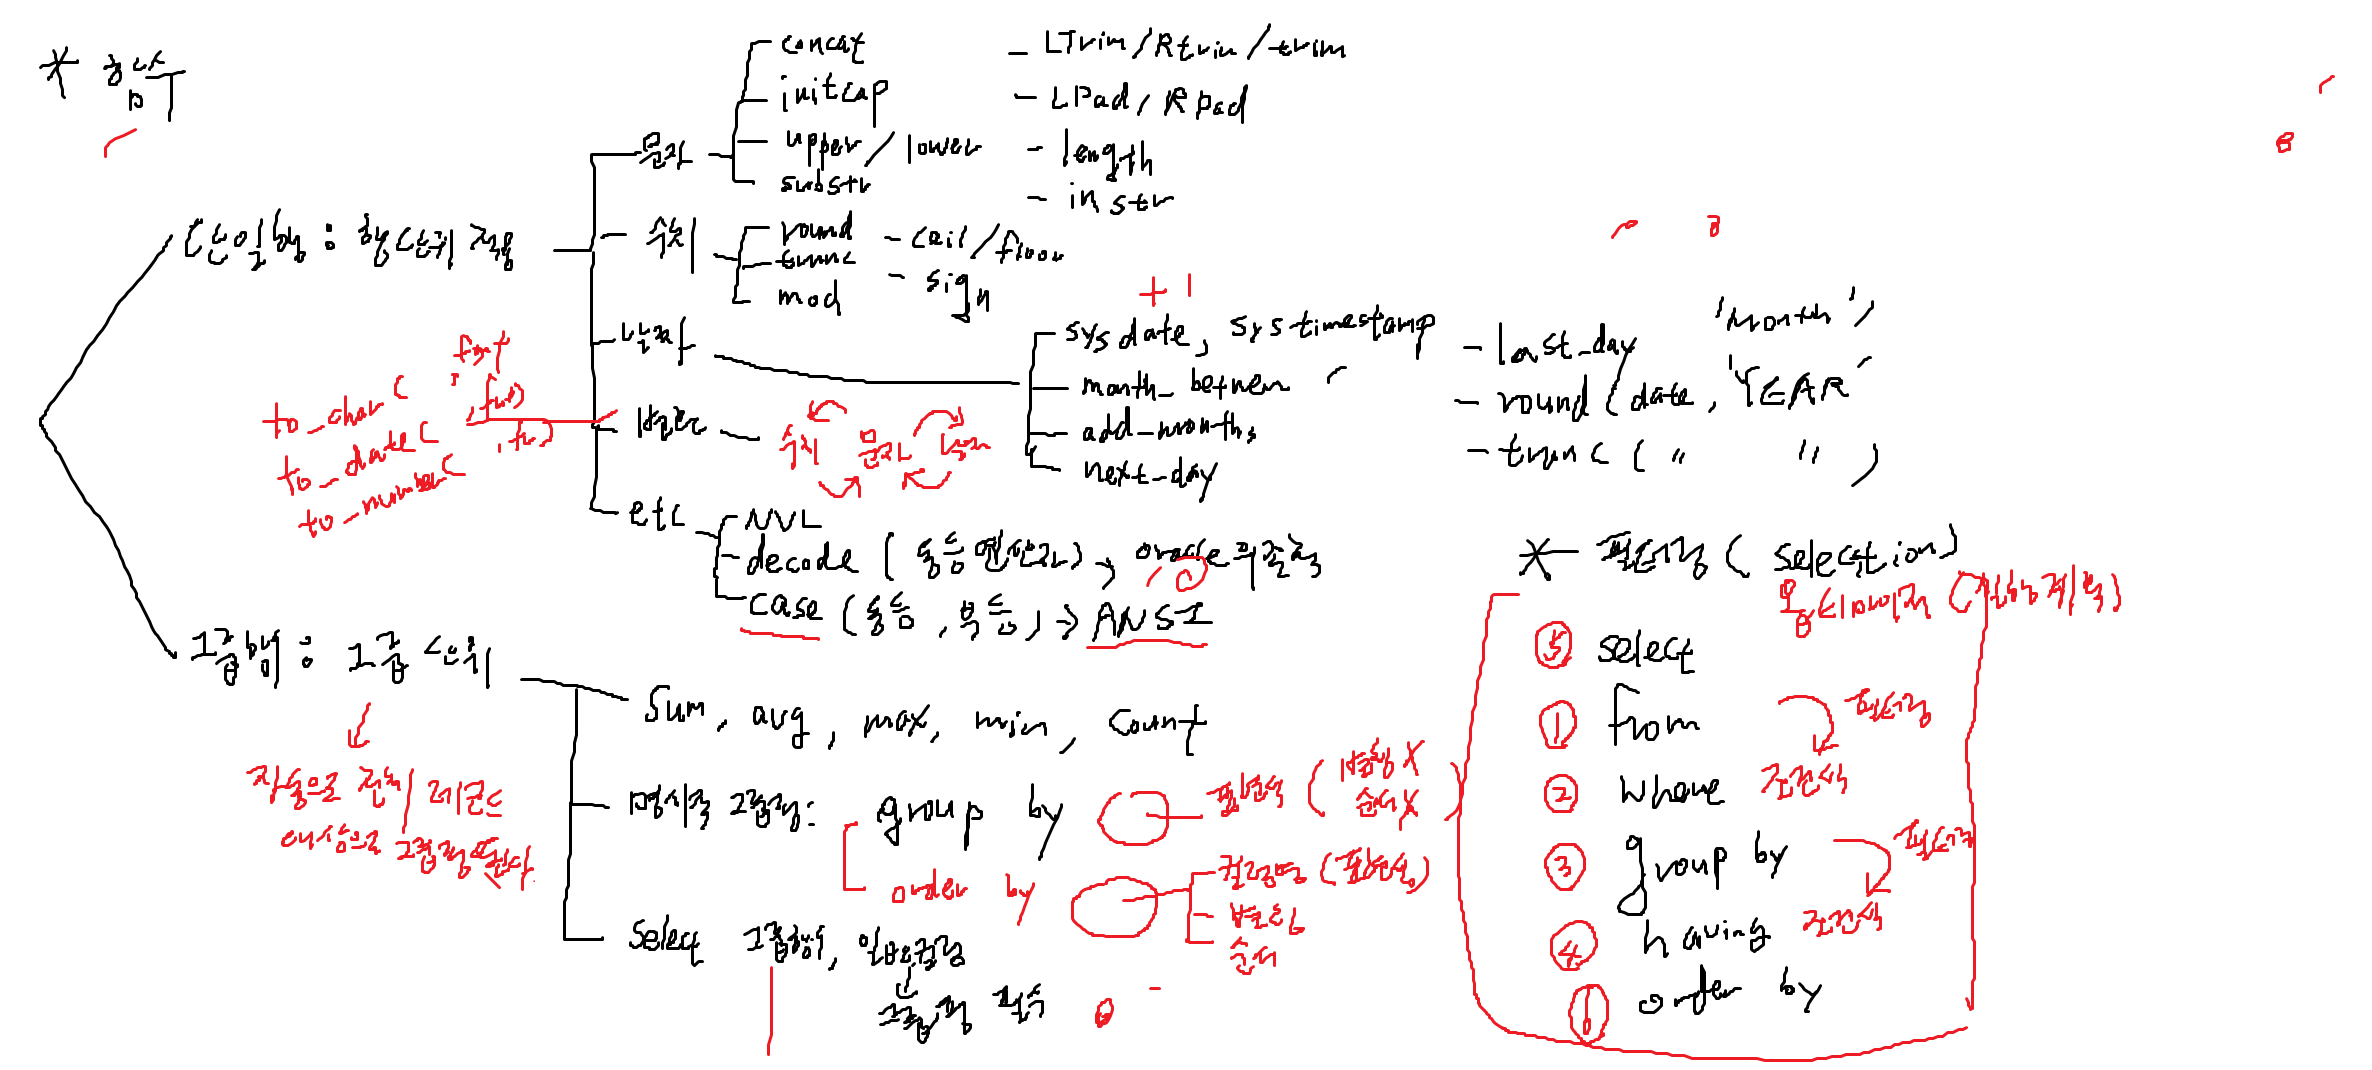 * 함수
단일행 : 행단위 적용
문자
concat
initcap
upper / lower
substr
- LTrim / Rtrim / trim
- LPad / RPad
- length
- instr
수치
round
trunc
mod
- ceil / floor
- sign
날짜
+ 1
sysdate, systimestamp
month_between
add_months
next_day
- last_day
'month')
- round (date, 'YEAR'
- trunc ( " " )
변환
수치 문자 날짜
to_char ( , fmt
to_date ( , fmt)
to_number ( , fm)
etc
NVL
decode ( 동등연산자) → oracle 의존적
case (동등, 부등) → ANSI
그룹행 : 그룹 단위
자동으로 전체 레코드
대상으로 그룹핑된다.
Sum, avg, max, min, count
명시적 그룹핑: group by
표현식 ( 별칭 X
순서 X )
order by
컬럼명 (표현식)
별칭
순서
select 그룹행, 일반컬럼
그룹핑 필수
* 필터링 ( selection)
옵티마이저 (실행계획)
⑤ select
① from
필터링
② where 조건식
③ group by
필터링
④ having 조건식
⑥ order by